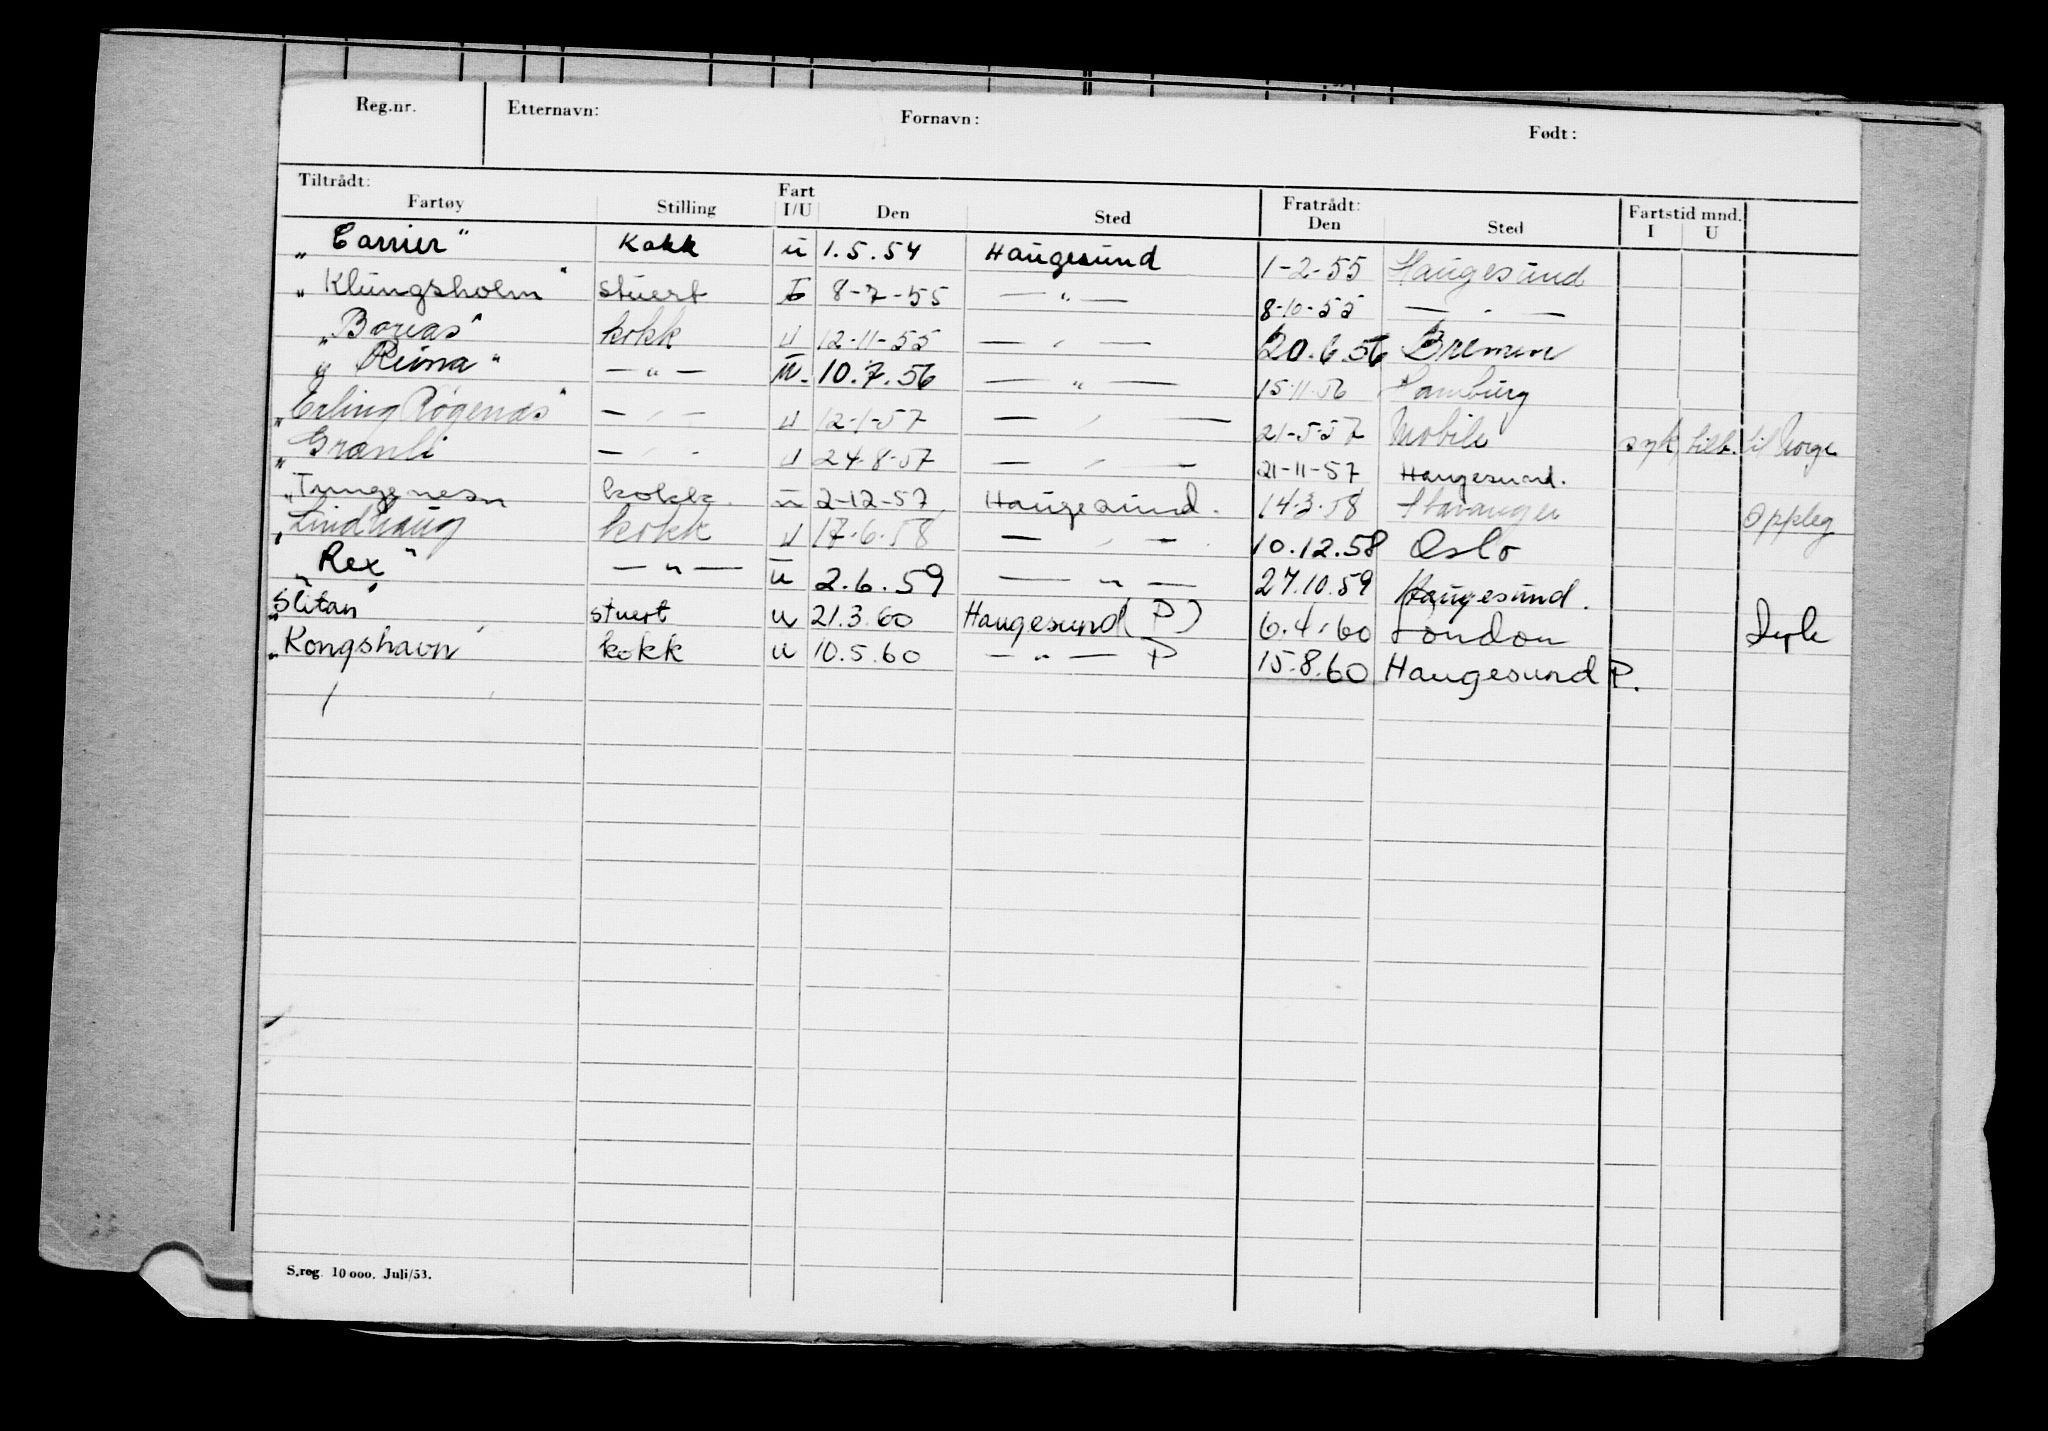 Reg.nr. Etternavn: Fornavn: Født:
Tiltrådt: Fart Fratrådt: Fartstid mnd.
Fartøy Stilling I/U Den Sted Den Sted I U
"Carrier" Kokk u 1.5.54 Haugesund 1-2-55 Haugesund
"Klungsholm" stuert I 8-7-55 — " — 8-10-55 — " —
"Boreas" kokk u 12-11-55 — " — 20.6.56 Bremen
"Reima" — " — u. 10.7.56 — " — 15.11.56 Hamburg
"Erling Røgenæs" — " — u 12-1-57 — " — 21-5-57 Mobile syk, til Norge
"Granli — " — u 24-8-57 — " — 21-11-57 Haugesund.
"Tungenesn kokk. u 2-12-57 Haugesund. 14.3.58 Stavanger Oppleg
"Lindhaug kokk u 17.6.58 — " — 10.12.58 Oslo
"Rex" — " — u 2.6.59 — " — 27.10.59 Haugesund.
"Slitan" stuert u 21.3.60 Haugesund (P) 6.4.60 London Syk
"Kongshavn kokk u 10.5.60 — " — P 15.8.60 Haugesund P.
S.reg. 10 000. Juli/53.